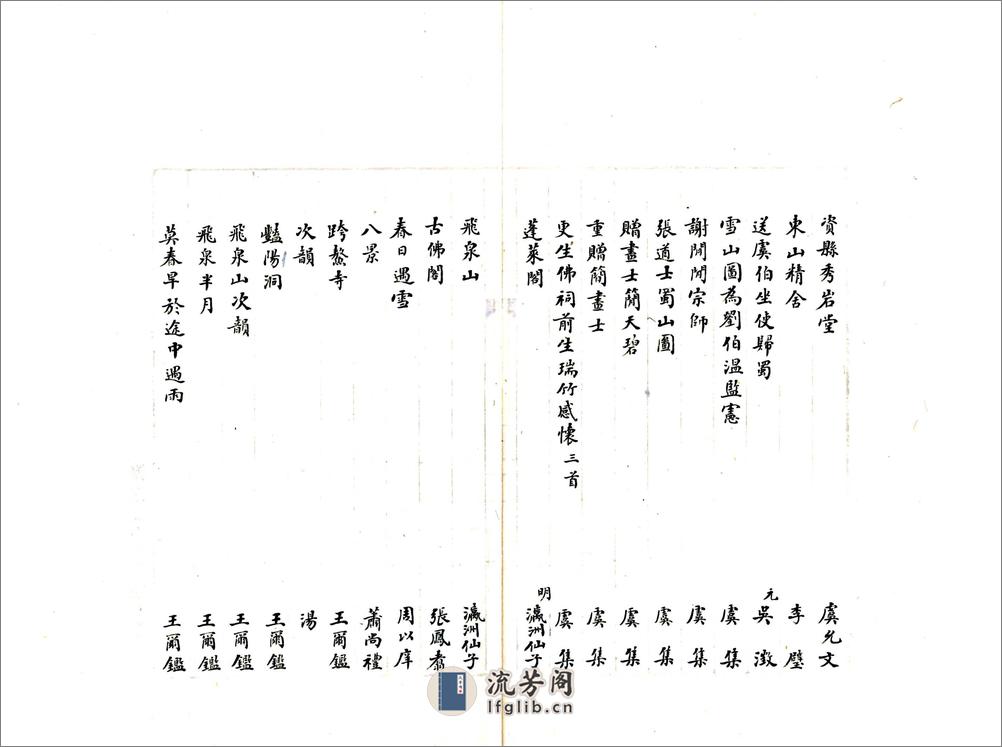 資縣秀岩堂 虞允文
東山精舍 李壁
送虞伯生使歸蜀 元 吳澂
雪山圖為劉伯温監憲 虞集
謝閒閒宗師 虞集
張道士蜀山圖 虞集
贈畫士簡天碧 虞集
重贈簡畫士 虞集
更生佛祠前生瑞竹感懷三首 虞集
蓬萊閣 明 瀛洲仙子
飛泉山 瀛洲仙子
古佛閣 張鳳翥
春日遇雪 周以庠
八景 蕭尚禮
跨鰲寺 王爾鑑
次韻 湯
豔陽洞 王爾鑑
飛泉山次韻 王爾鑑
飛泉半月 王爾鑑
莫春早於途中遇雨 王爾鑑
流芳阁
lfglib.cn